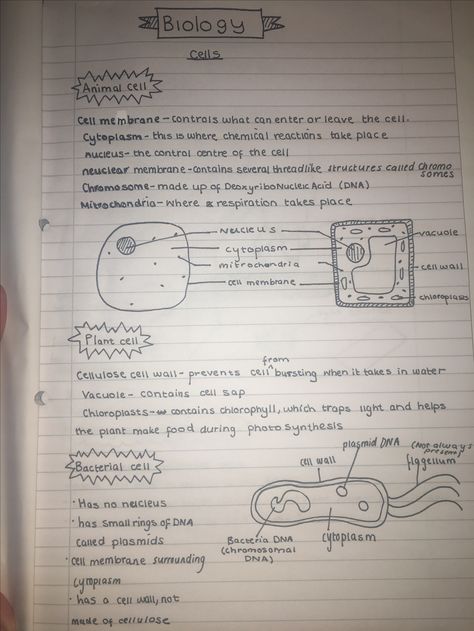 Biology
Cells
Animal cell
Cell membrane - controls what can enter or leave the cell.
Cytoplasm - this is where chemical reactions take place
nucleus - the control centre of the cell
neuclear membrane - contains several threadlike structures called Chromo
somes
Chromosome - made up of DeoxyriboNucleic Acid (DNA)
Mitochondria - where respiration takes place
Nucleus
cytoplasm
mitrochondria
cell membrane
vacuole
cell wall
chloroplasts
Plant cell
from
Cellulose cell wall - prevents cell ^ bursting when it takes in water
Vacuole - contains cell sap
Chloroplasts - contains chlorophyll, which traps light and helps
the plant make food during photosynthesis
Bacterial cell
· Has no nucleus
· has small rings of DNA
called plasmids
· cell membrane surrounding
cytoplasm
· has a cell wall, not
made of cellulose
cell wall
plasmid DNA
(Not always
present)
flagellum
Bacteria DNA
(chromosomal
DNA)
cytoplasm